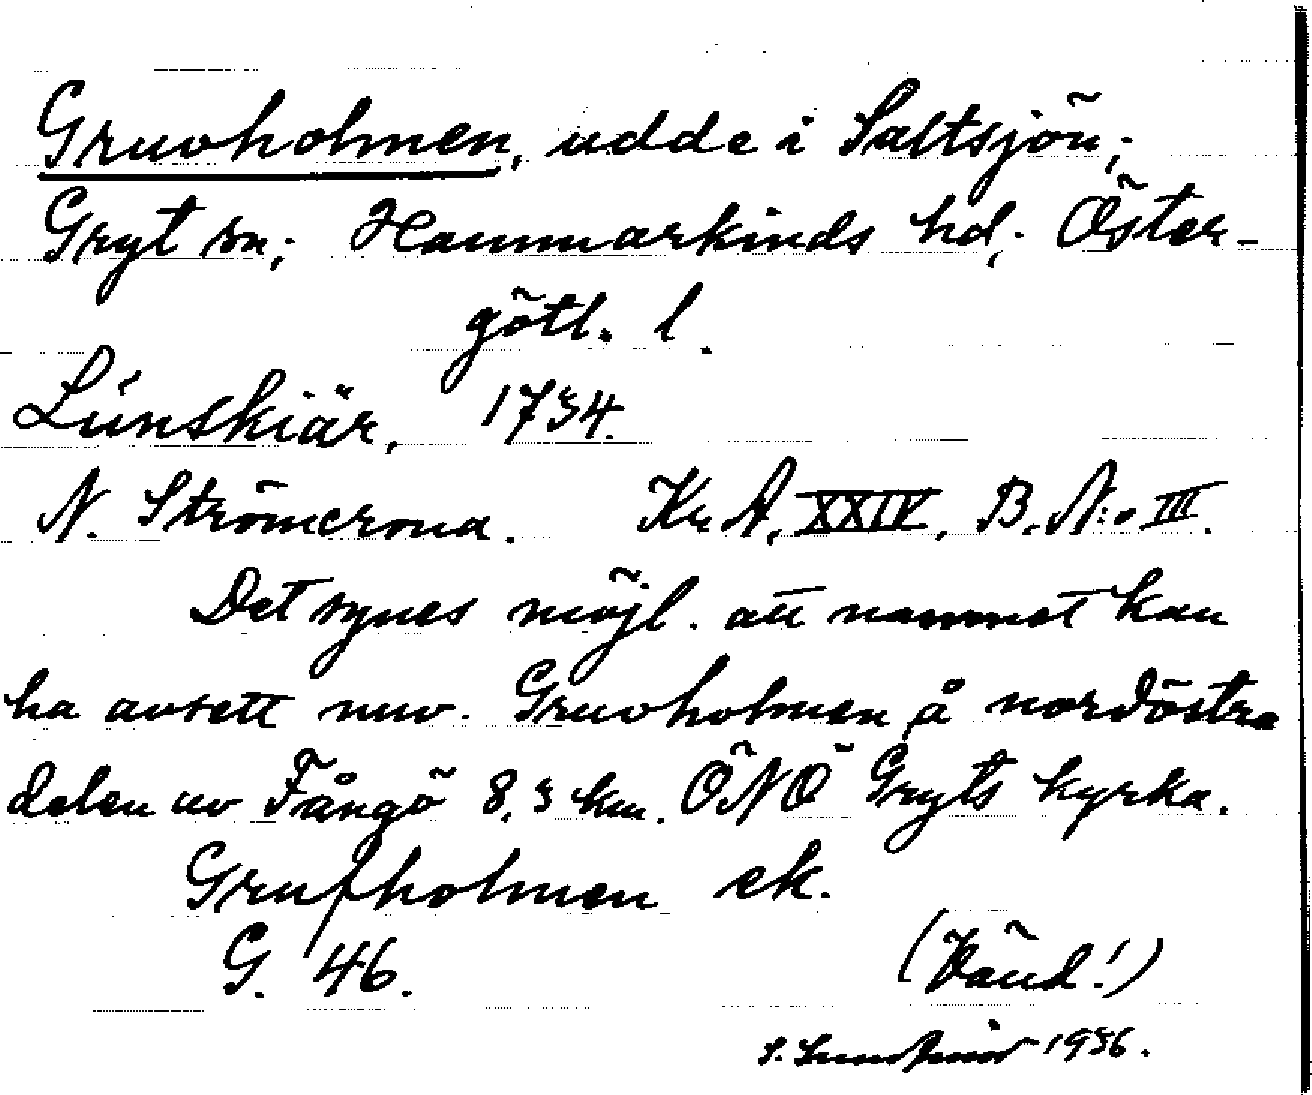 Gruvholmen, udde i Saltsjön;
Gryt sn; Hammarkinds hd; Öster-
götl. l.
Lünskiär, 1734.
N. Strömcrona. Kr A, XXIV, B. N:o III.
Det synes möjl. att namnet kan
ha avsett nuv. Gruvholmen å nordöstra
delen av Fångö 8,3 km. ÖNÖ Gryts kyrka.
Grufholmen ek.
G. 46.
(Vänd!)
S. 1936.